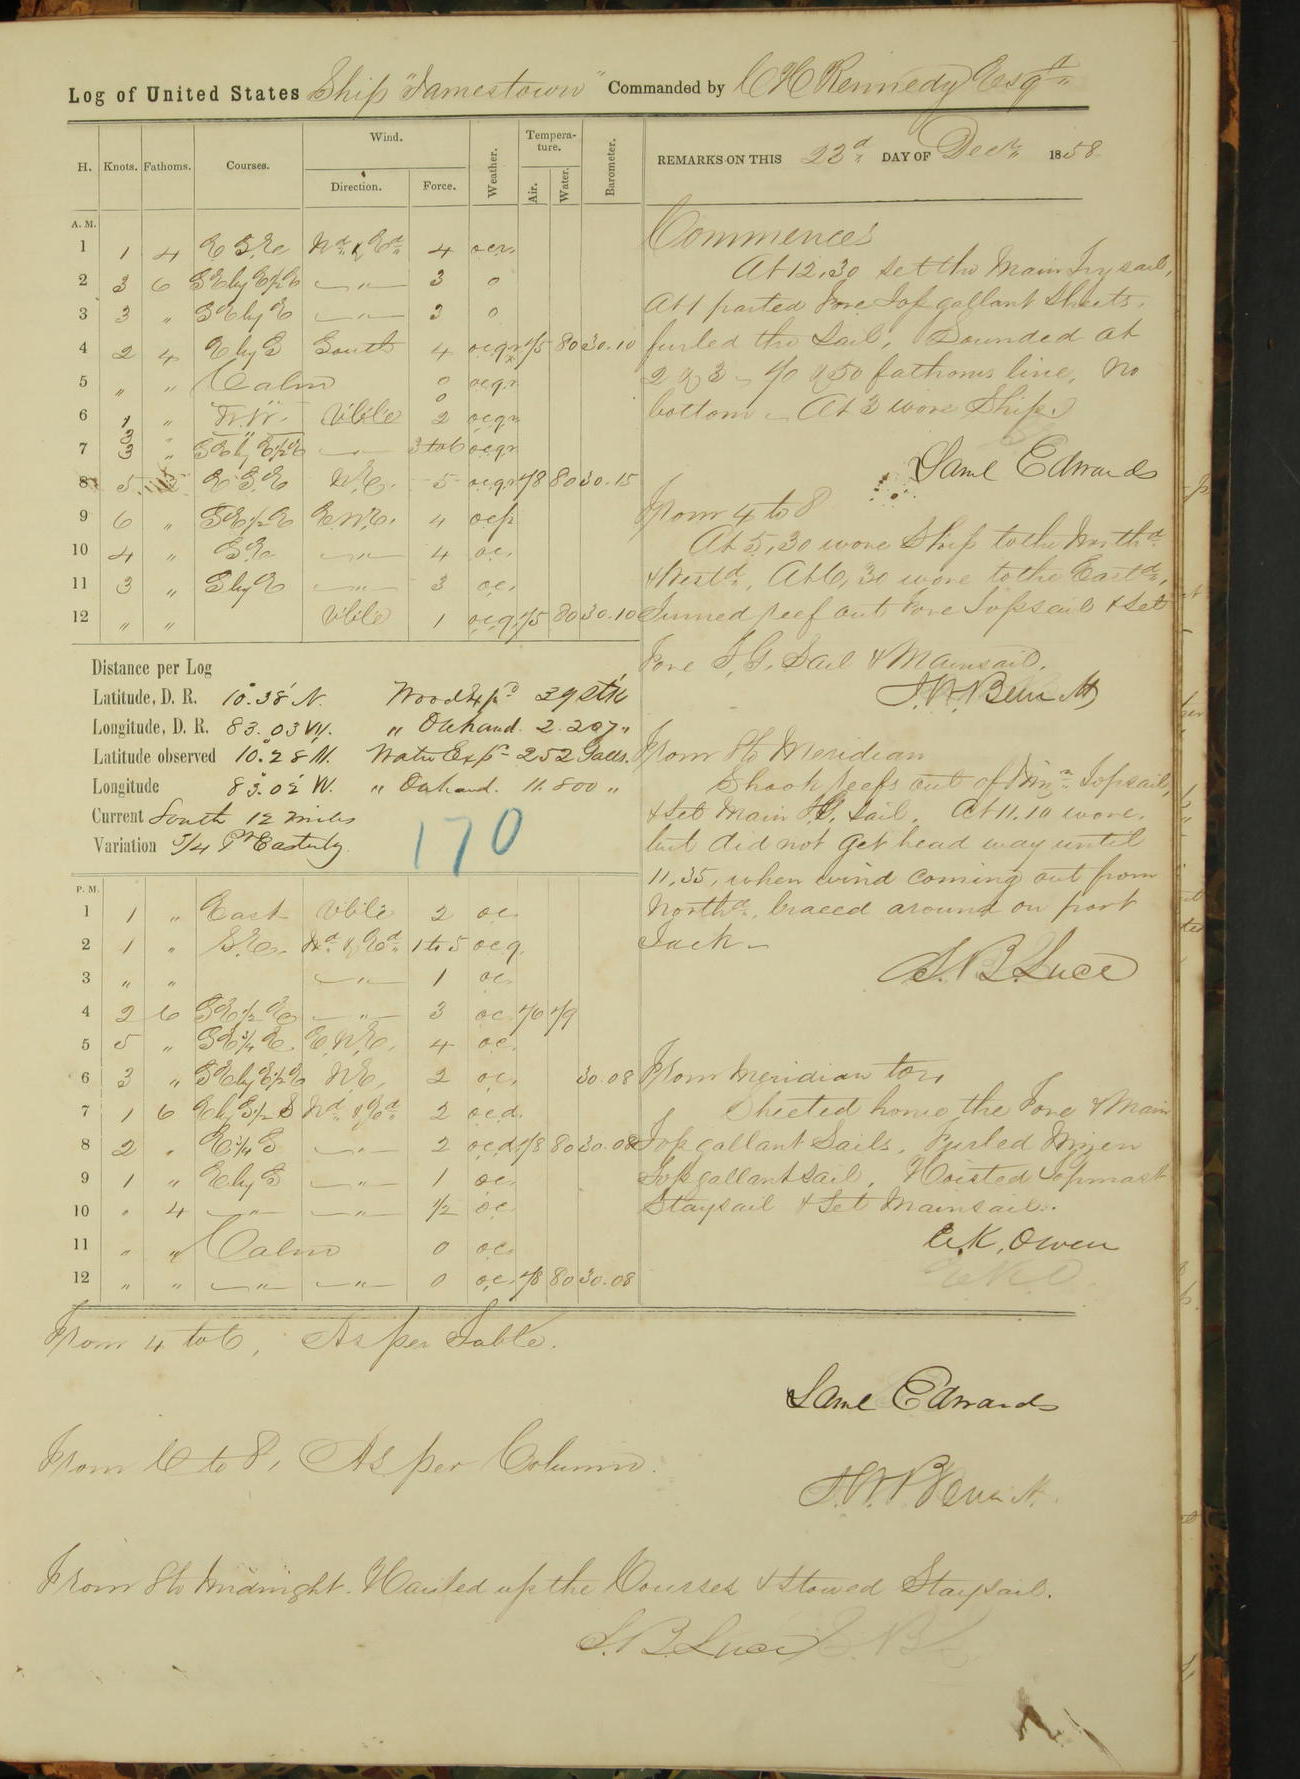 Log of United States Ship "Jamestown" Commanded by C H Kennedy Esqr
H. Knots. Fathoms. Courses. Wind. Direction. Force. Weather. Tempera-ture. Air. Water. Barometer.
REMARKS ON THIS 23d DAY OF Decr 1858
A. M.
1 1 4 E.S.E. Nd & Ed 4 ocr
2 3 6 SE by E½E " 3 o
3 3 " SE by E " 3 o
4 2 4 E by S South 4 80 30.10
5 " " Calm 0 ocqr
6 1 " N.W. Vble 2 ocqr
7 3 " SE by E½E " 3 to 6 ocqr
8 5 E S E N.E. 5 ocqr 78 80 30.15
9 6 " SE½E E.N.E. 4 ocp
10 4 " S.E. " 4 oc
11 3 " S by E " 3 oc
12 " " Vble 1 ocq 75 80 30.10
Commences
At 12.30 set the Main Trysail,
At 1 parted Fore Top gallant Sheets.
furled the Sail, Sounded at
2 & 3 - 40 & 50 fathoms line, No
bottom - At 3 wore Ship.
Saml Edwards
From 4 to 8
At 5.30 wore Ship to the Northd
& Westd. At 6.30 wore to the Eastd,
Turned reef out Fore Topsail & Set
Fore T.G. Sail & Mainsail.
From 8 to Meridian
Shook reefs out of Topsail,
& Set Main T.G. Sail. At 11.10 wore.
but did not get head way until
11.35, when wind coming out from
Northd, braced around on port
Tack -
S. B. Luce
Distance per Log
Latitude, D. R. 10.38' N. Wood Expd 39 Stks
Longitude, D. R. 83.03 W. " On hand. 2.207 "
Latitude observed 10.28 N. Water Expd 252 Galls.
Longitude 83.02 W. " On hand. 11.800 "
Current South 12 miles
Variation ¾ Pt Easterly
170
P. M.
1 1 " East Vble 2 oc
2 1 " S.E. Nd & Ed 1 to 5 ocq.
3 " " " 1 oc
4 2 6 SE½E " 3 oc 76 79
5 5 " SE¾E E.N.E. 4 oc.
6 3 " SE by E½E N.E. 2 oc 30.08
7 1 6 E by S½S Nd & Ed 2 ocd.
8 2 " E¾S " 2 ocd 78 80 30.08
9 1 " E by S " 1 oc
10 " 4 " " ½ oc
11 " " Calm 0 oc
12 " " " " 0 oc. 78 80 30.08
From Meridian to 4
Sheeted home the Fore & Main
Top gallant Sails, Furled Mizen
Topgallant sail. Hoisted Topmast
Staysail & Set Mainsail.
E. K. Owen
From 4 to 6, As per Table.
Saml Edwards
From 6 to 8, As per Column.
From 8 to Midnight. Hauled up the Courses & stowed Staysail.
S. B. Luce